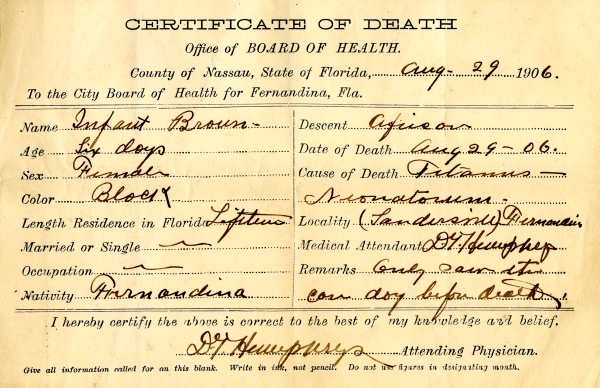 CERTIFICATE OF DEATH
Office of BOARD OF HEALTH.
County of Nassau, State of Florida, Aug- 29 1906.
To the City Board of Health for Fernandina, Fla.
Name Infant Brown-
Age Six days
Sex Female
Color Black
Length Residence in Florida Lifetime
Married or Single
Occupation
Nativity Fernandina
Descent African
Date of Death Aug 29-06.
Cause of Death Titanus-
Neonatorum-
Locality (Sandersville) Fernandina
Medical Attendant DG Humphreys
Remarks Only saw the
case day before death.
I hereby certify the above is correct to the best of my knowledge and belief.
Humphreys Attending Physician.
Give all information called for on this blank. Write in ink, not pencil. Do not use figures in designating month.